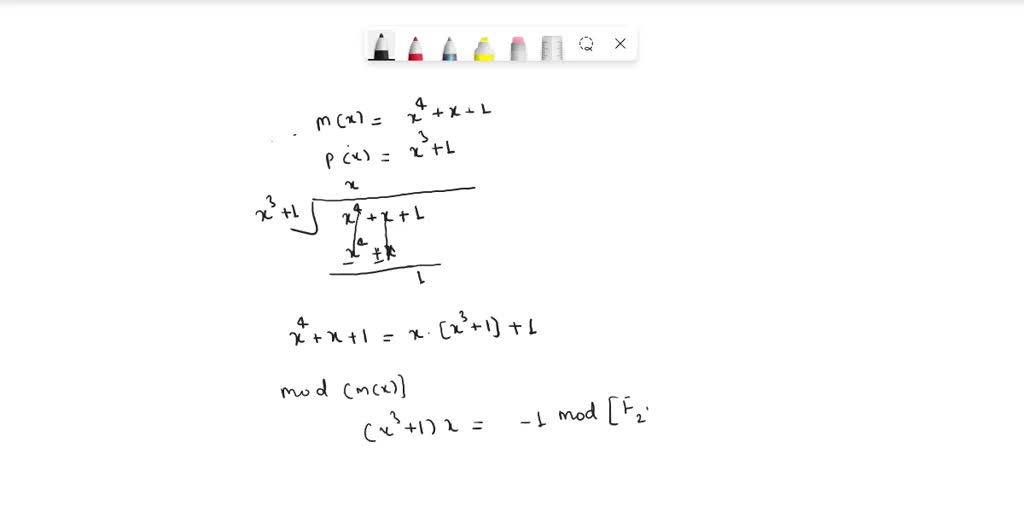 m(x) = x⁴ + x + 1
p(x) = x³ + 1
x
x³ + 1 √ x⁴ + x + 1
x⁴ ± x
1
x⁴ + x + 1 = x · [x³ + 1] + 1
mod (m(x)]
(x³ + 1) x = -1 mod [F₂.